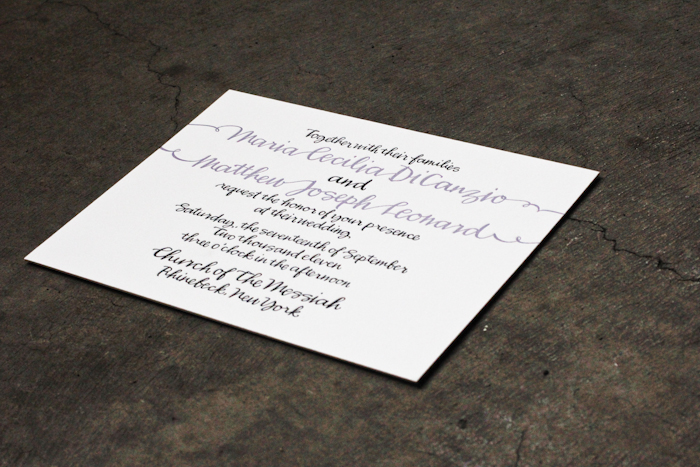 Together with their families
Maria Cecilia DiCanzio
and
Matthew Joseph Leonard
request the honor of your presence
at their wedding
Saturday, the seventeenth of September
Two thousand eleven
three o'clock in the afternoon
Church of The Messiah
Rhinebeck, New York